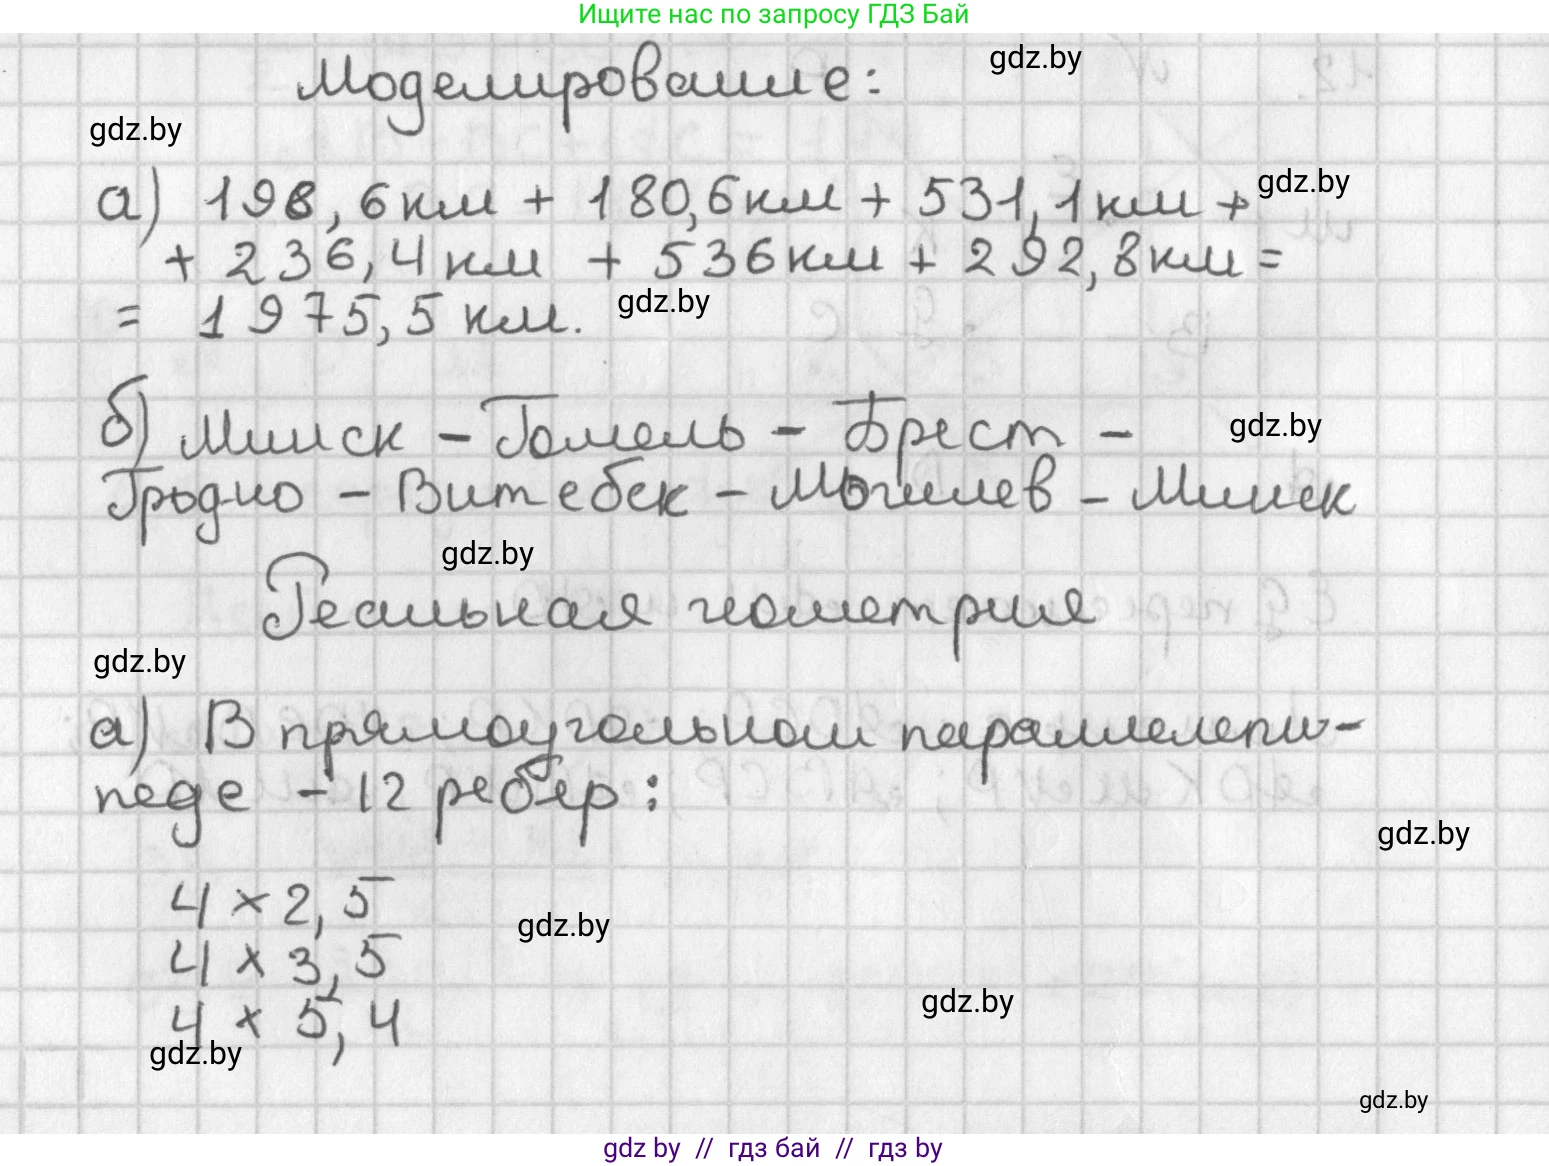 Ищите нас по запросу ГДЗ Бай
Моделирование:
gdz.by
gdz.by
а) 198,6 км + 180,6 км + 531,1 км +
gdz.by
+ 236,4 км + 536 км + 292,8 км =
= 1975,5 км.
gdz.by
б) Минск – Гомель – Брест –
gdz.by
Гродно – Витебск – Могилев – Минск
gdz.by
Реальная геометрия
gdz.by
а) В прямоугольном параллелепи-
педе – 12 ребер:
gdz.by
4 × 2,5
gdz.by
4 × 3,5
gdz.by
4 × 5,4
gdz.by
gdz.by
gdz by // гдз бай // гдз by